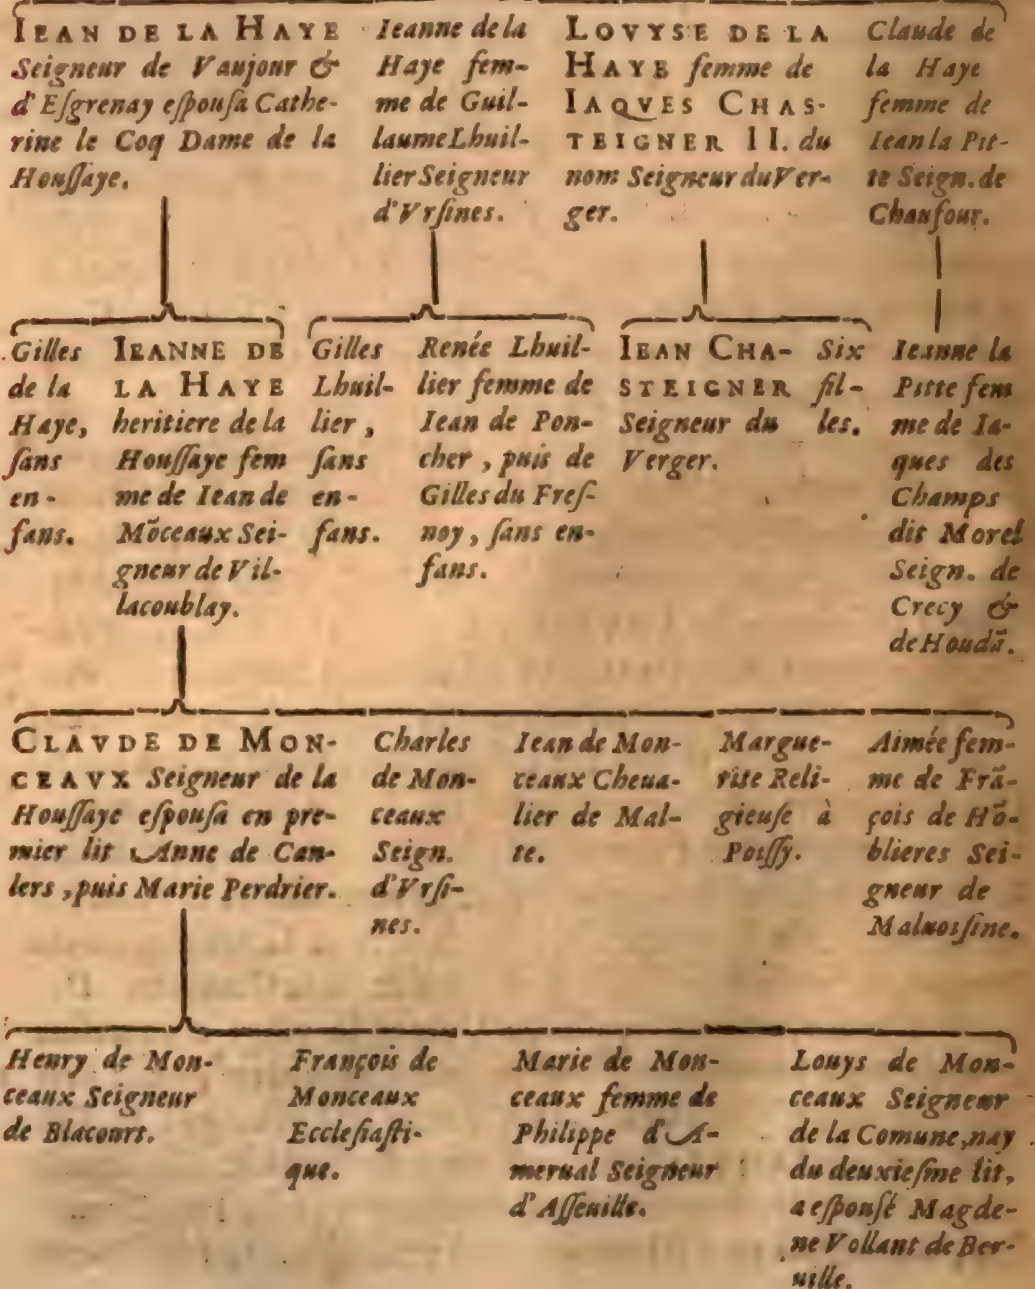 IEAN DE LA HAYE
Seigneur de Vaujour &
d'Esgrenay espousa Cathe-
rine le Coq Dame de la
Houssaye.
Ieanne de la
Haye fem-
me de Guil-
laume Lhuil-
lier Seigneur
d'Vrsines.
LOVYSE DE LA
HAYE femme de
IAQVES CHAS-
TEIGNER II. du
nom Seigneur du Ver-
ger.
Claude de
la Haye
femme de
Iean la Pit-
te Seign. de
Chaufour.
Gilles
de la
Haye,
sans
en-
fans.
IEANNE DE
LA HAYE
heritiere de la
Houssaye fem
me de Iean de
Mõceaux Sei-
gneur de Vil-
lacoublay.
Gilles
Lhuil-
lier,
sans
en-
fans.
Renée Lhuil-
lier femme de
Iean de Pon-
cher, puis de
Gilles du Fres-
noy, sans en-
fans.
IEAN CHA-
STEIGNER
Seigneur du
Verger.
Six
fil-
les.
Ieanne la
Pitte fem
me de Ia-
ques des
Champs
dit Morel
Seign. de
Crecy &
de Houdã.
CLAVDE DE MON-
CEAVX Seigneur de la
Houssaye espousa en pre-
mier lit Anne de Can-
lers, puis Marie Perdrier.
Charles
de Mon-
ceaux
Seign.
d'Vrsi-
nes.
Iean de Mon-
ceaux Cheua-
lier de Mal-
te.
Margue-
rite Reli-
gieuse à
Poissy.
Aimée fem-
me de Frã-
çois de Hõ-
blieres Sei-
gneur de
Maluoisine.
Henry de Mon-
ceaux Seigneur
de Blacourt.
François de
Monceaux
Ecclesiasti-
que.
Marie de Mon-
ceaux femme de
Philippe d'A-
merual Seigneur
d'Asseuille.
Louys de Mon-
ceaux Seigneur
de la Comune, nay
du deuxiesme lit,
a espousé Magde-
ne Vollant de Ber-
uille.